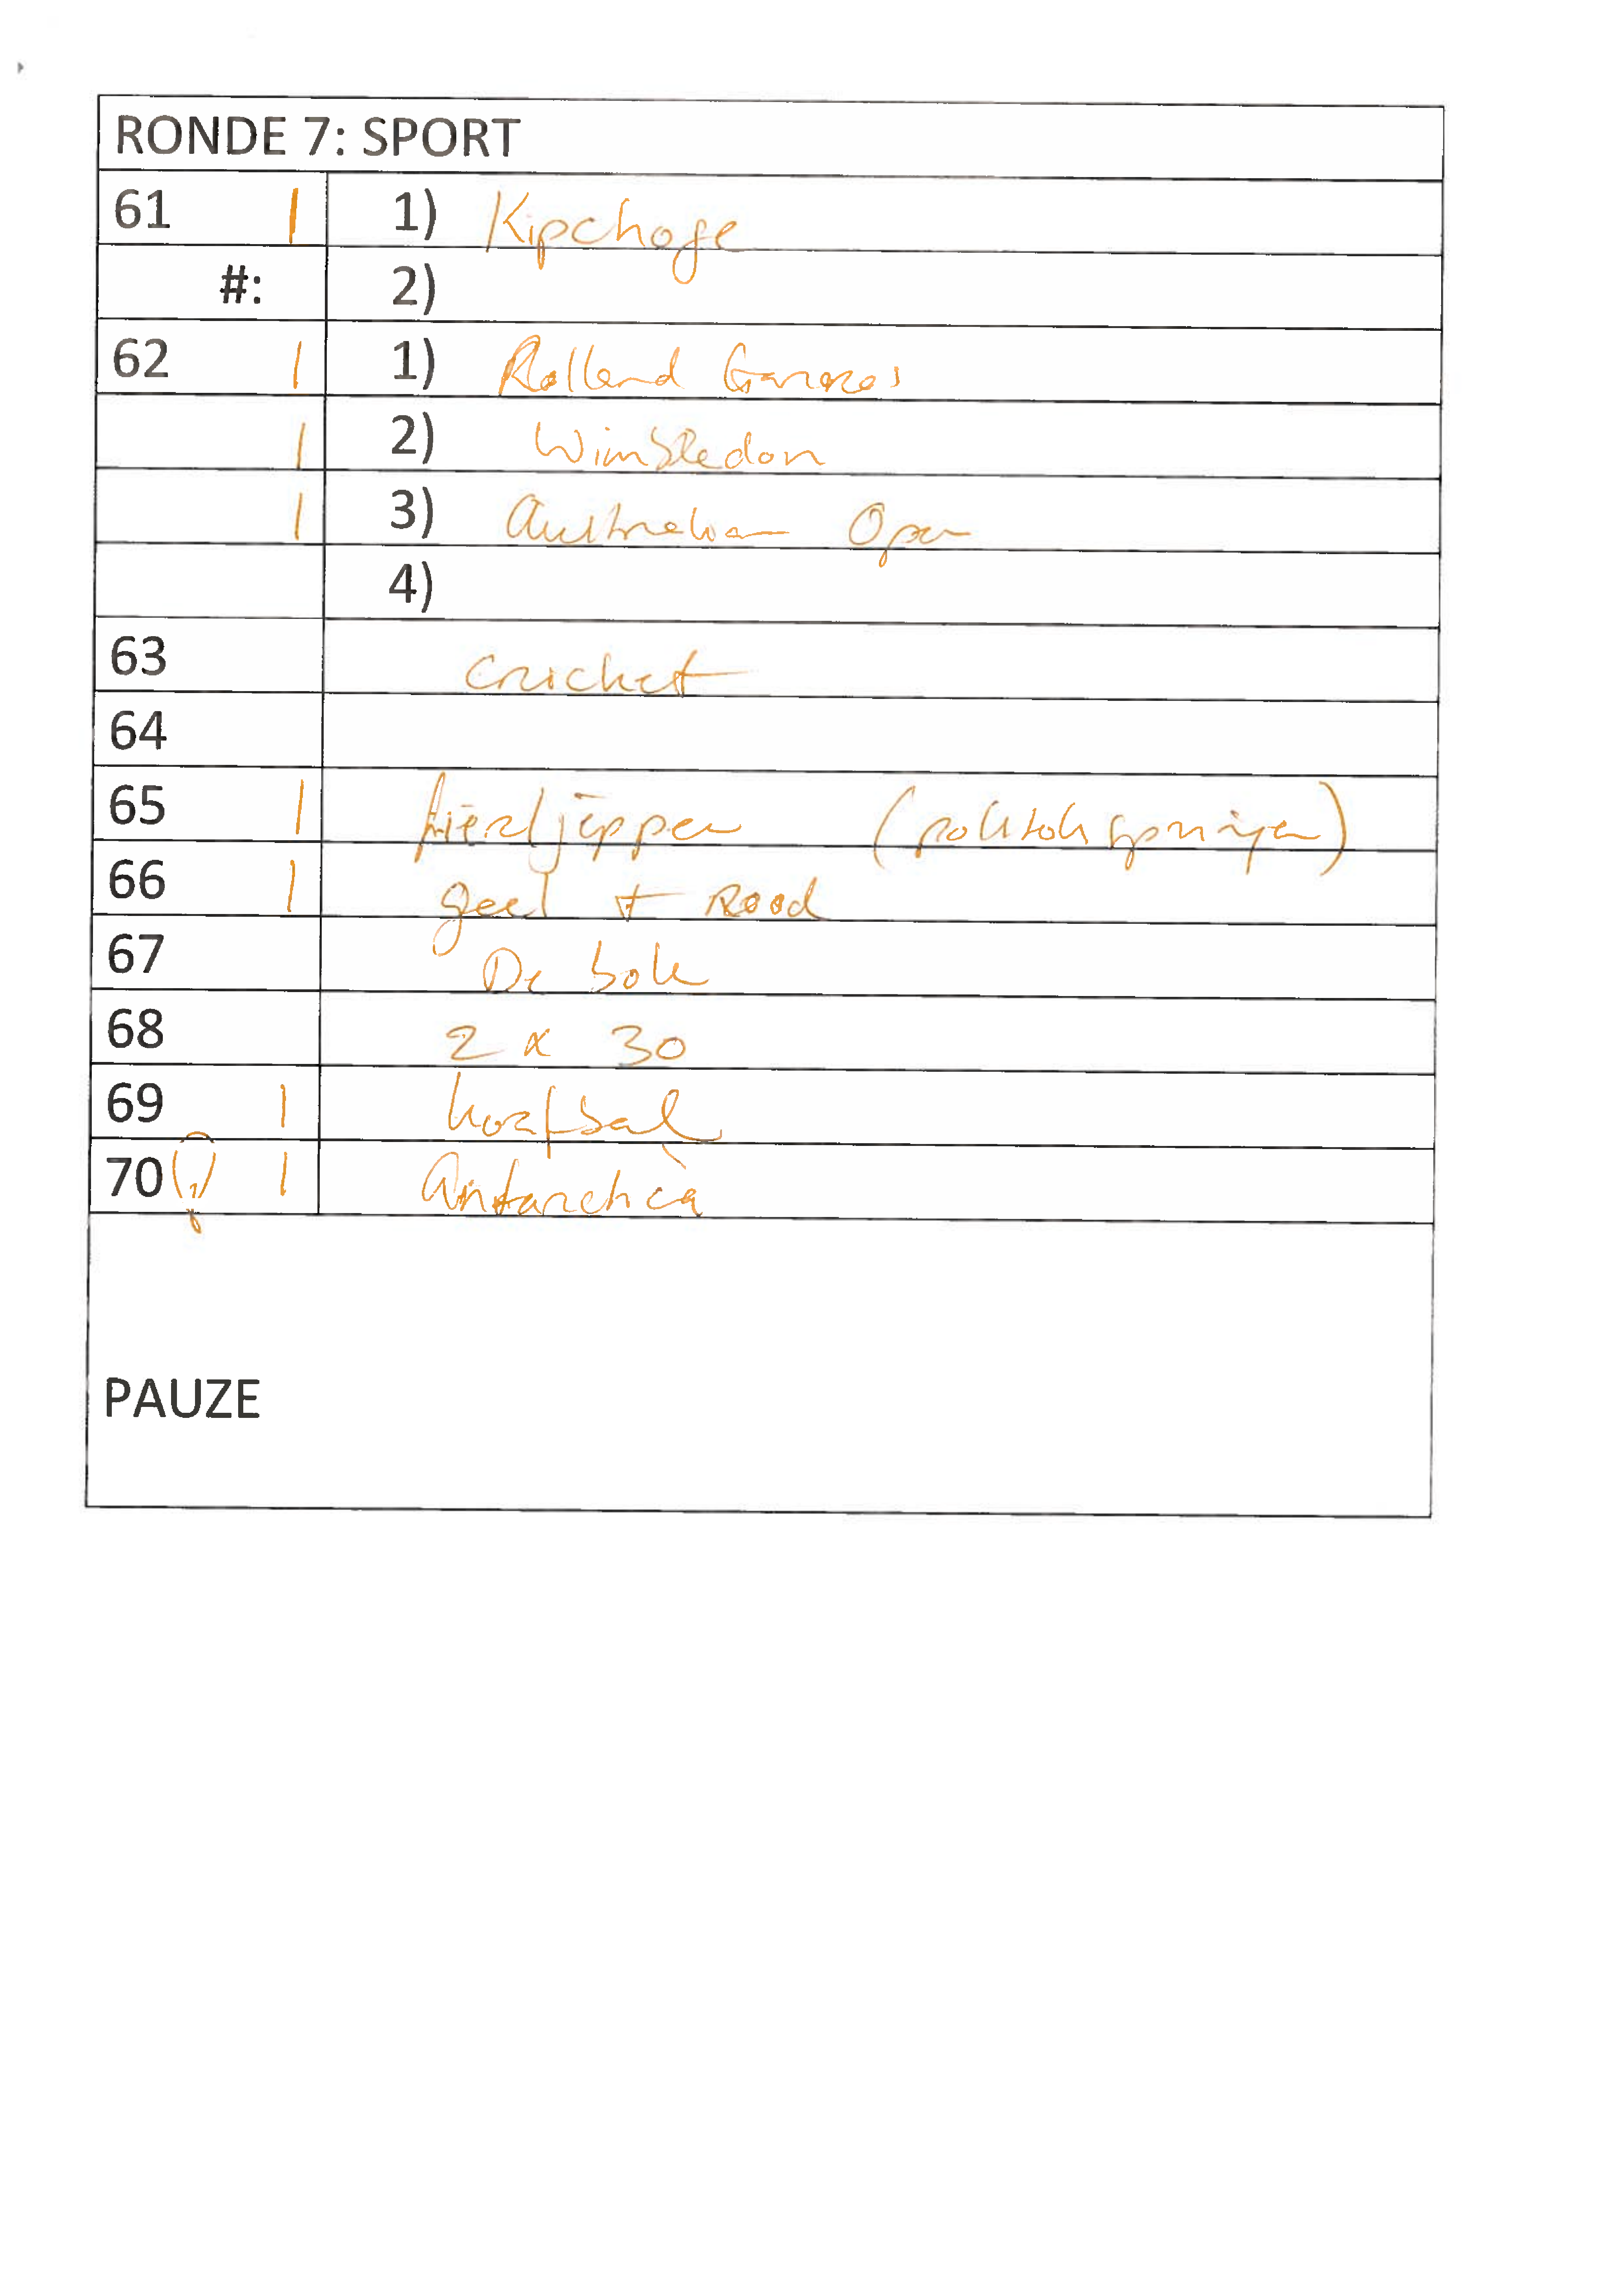 RONDE 7: SPORT
61 | 1) Kipchoge
#: 2)
62 | 1) Rolland Garros
| 2) Wimbledon
| 3) Australian Open
4)
63 cricket
64
65 | fierljeppen (polstokspringen)
66 | geel + Rood
67 De bok
68 2 x 30
69 | korfbal
70 | Antarctica
PAUZE